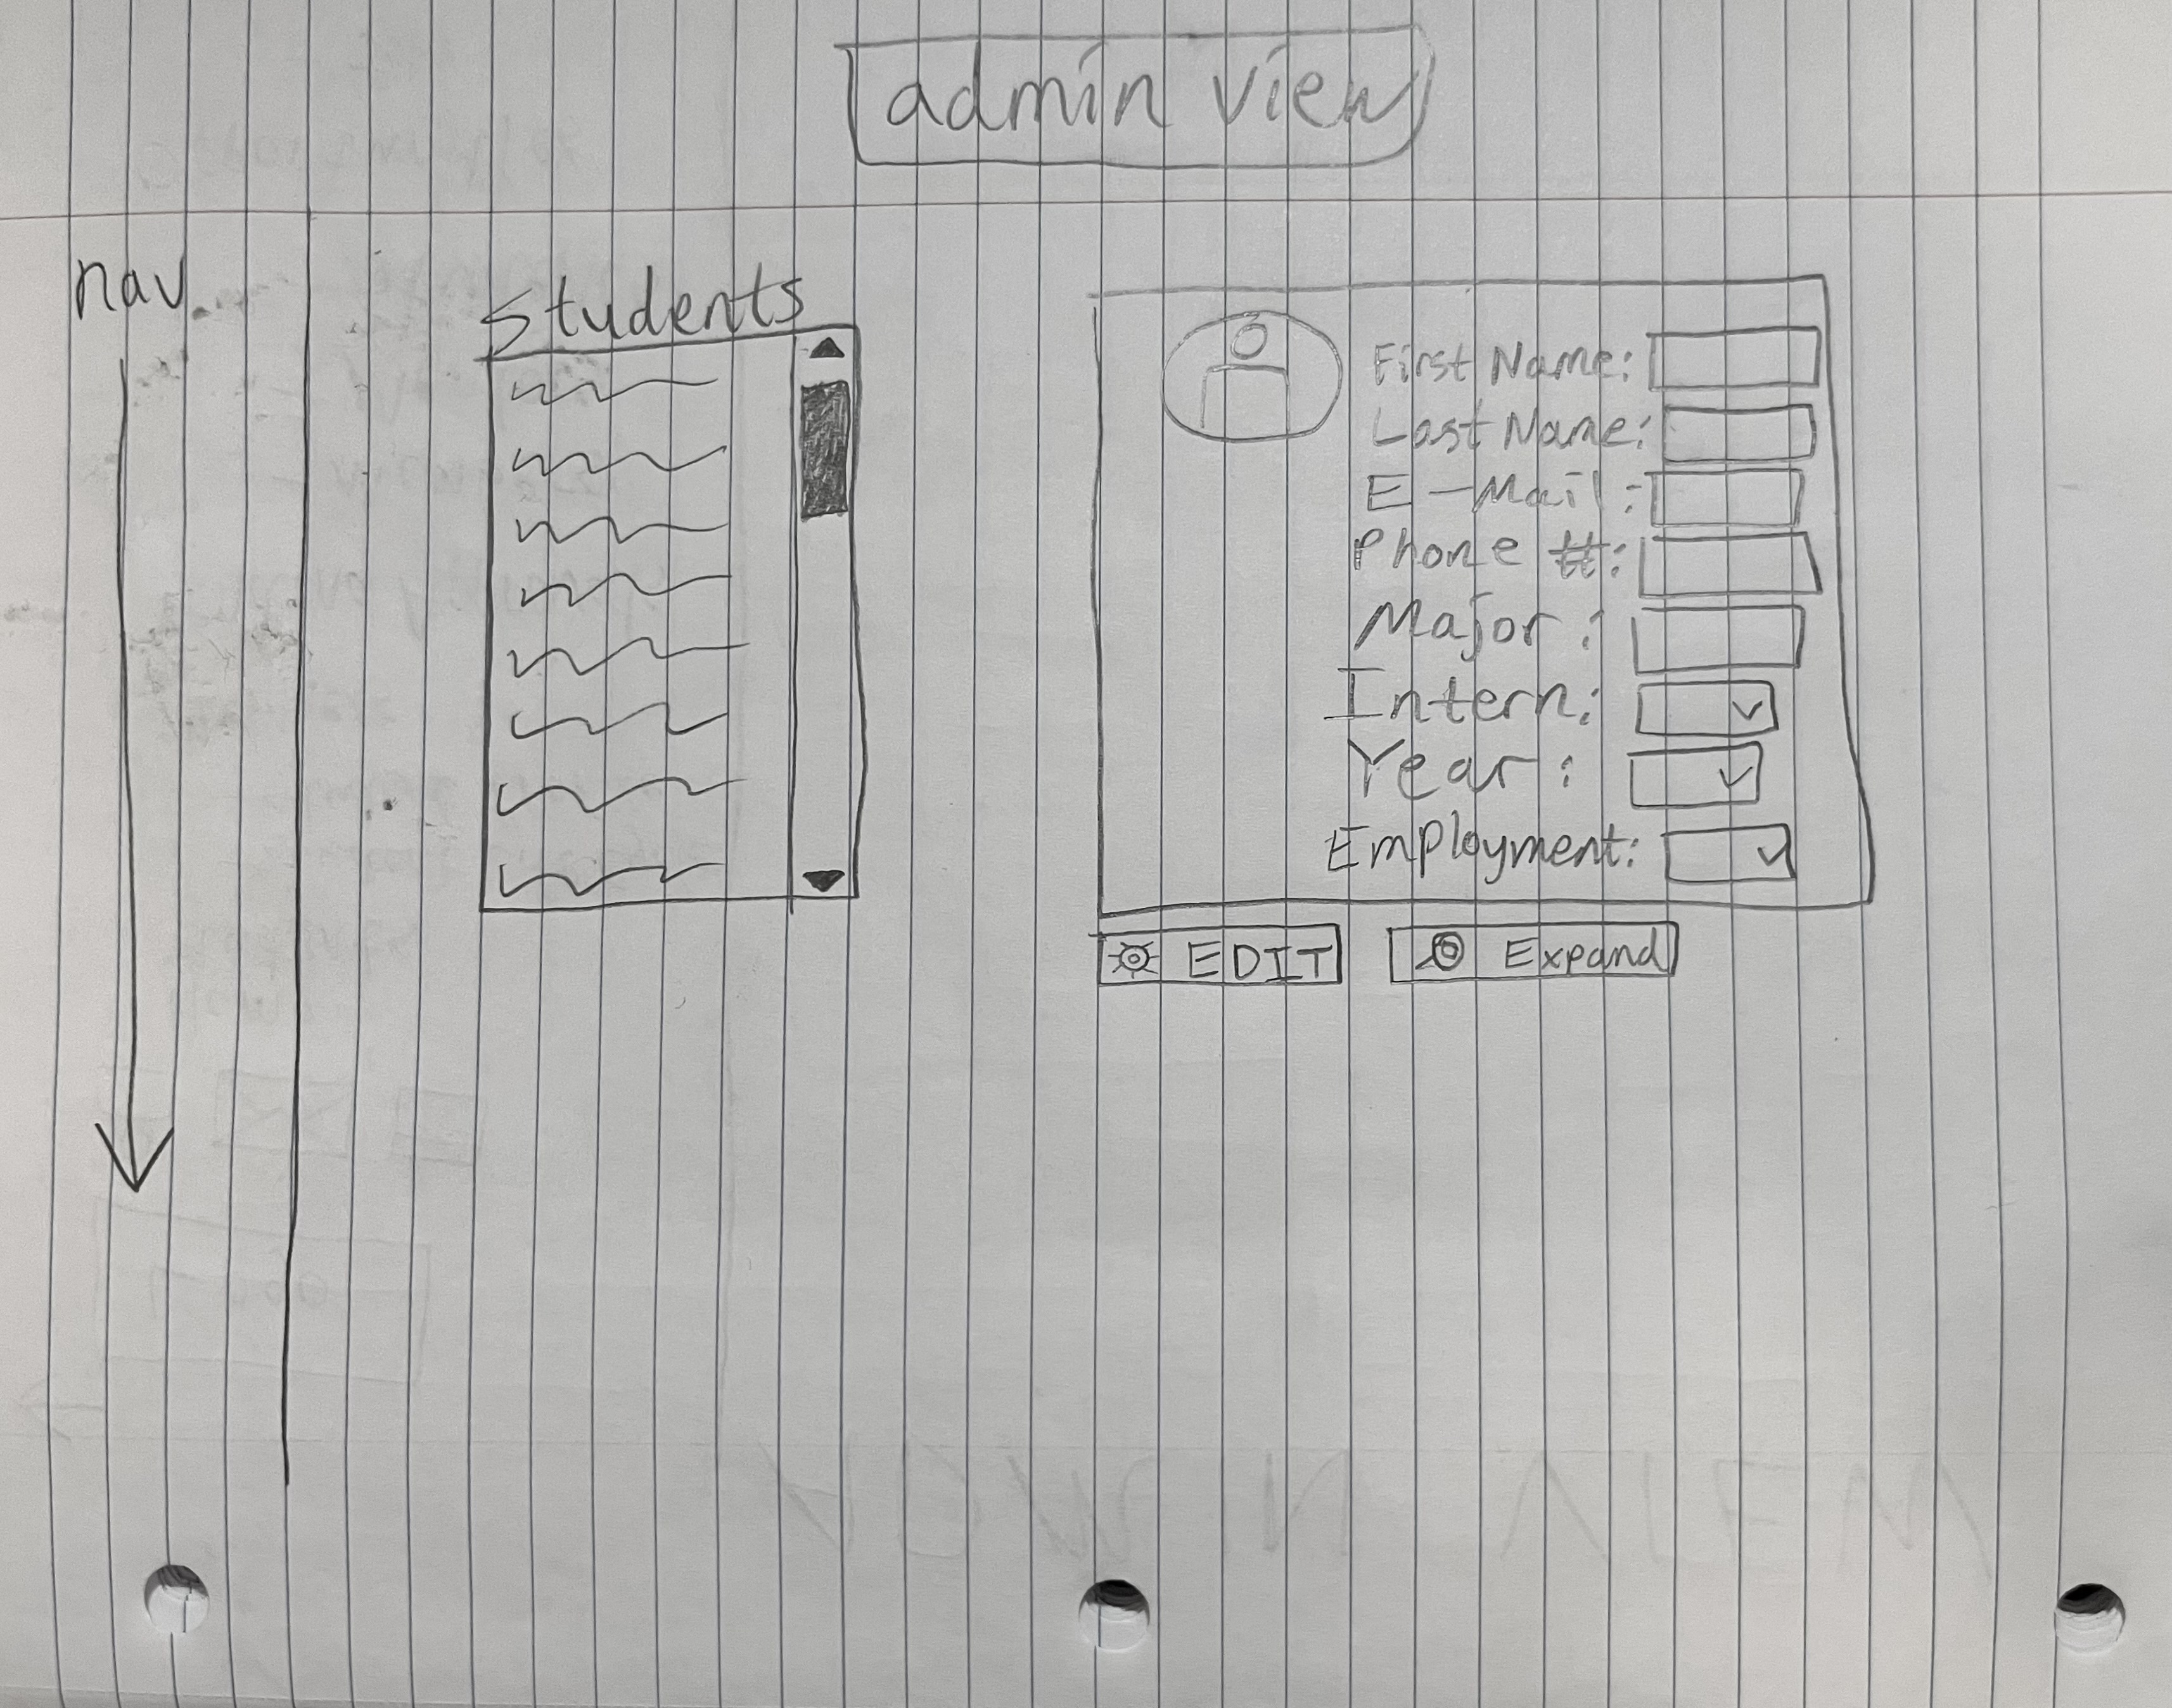 admin view
nav
Students
First Name:
Last Name:
E-Mail:
Phone #:
Major:
Intern:
Year:
Employment:
EDIT
Expand